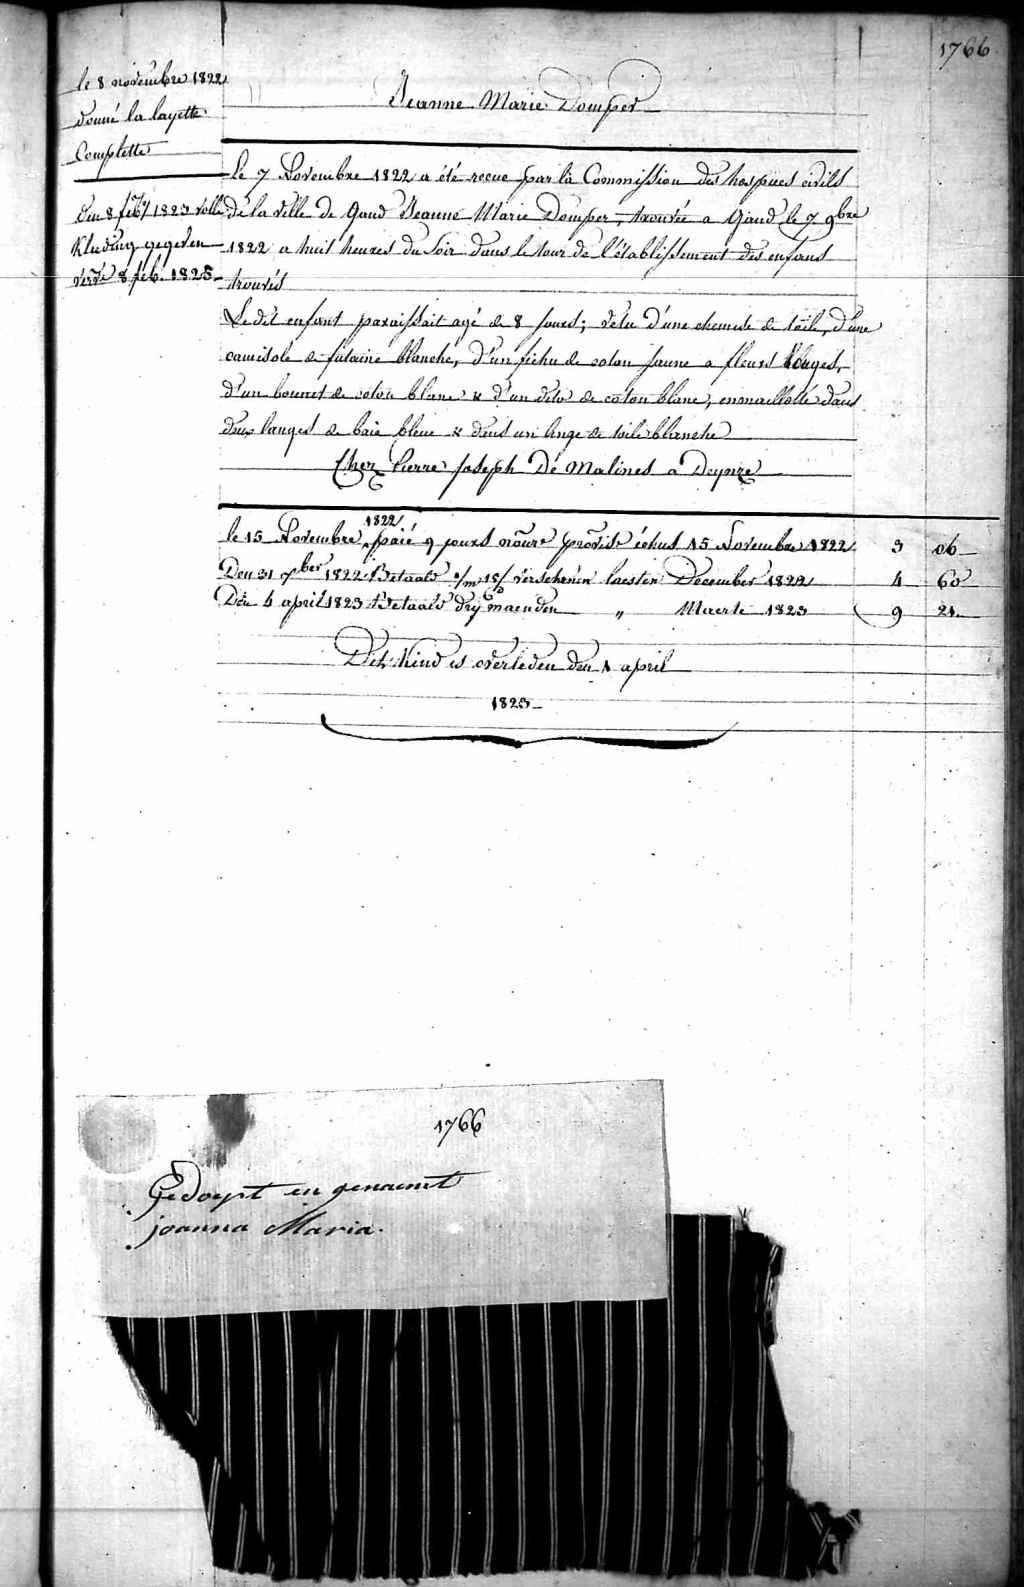 1766
le 8 novembre 1822
donné la layette
Complette
Den 8 feb.y 1823 volle
Kleding gegeven
8 feb. 1823
Jeanne Marie Domper
Le 7 Novembre 1822 a été recue par la Commission des hospices civils
de la ville de Gand Jeanne Marie Domper, trouvée a Gand le 7 9bre
1822 a huit heures du Soir dans le tour de l'établissement des enfans
trouvés
Le dit enfant paraissait agé de 8 jours; vétu d'une chemise de toile, d'une
camisole de futaine blanche, d'un fichu de coton jaune a fleurs Rouges,
d'un bonnet de coton blanc & d'un dito de coton blanc, enmailloté dans
deux langes de baie bleue & dans un linge de toile blanche
Chez Pierre Joseph De Malines a Deynze
le 15 Novembre 1822 paié 9 jours échus 15 Novembre 1822 3 06
Den 31 1822 Betaald laesten December 1822 4 60
Den 4 april 1823 Betaald dry maenden " Maerte 1823 9 21
Dit kind is overleden den 1 april
1823
1766
Gedoopt en genaemt
joanna Maria.